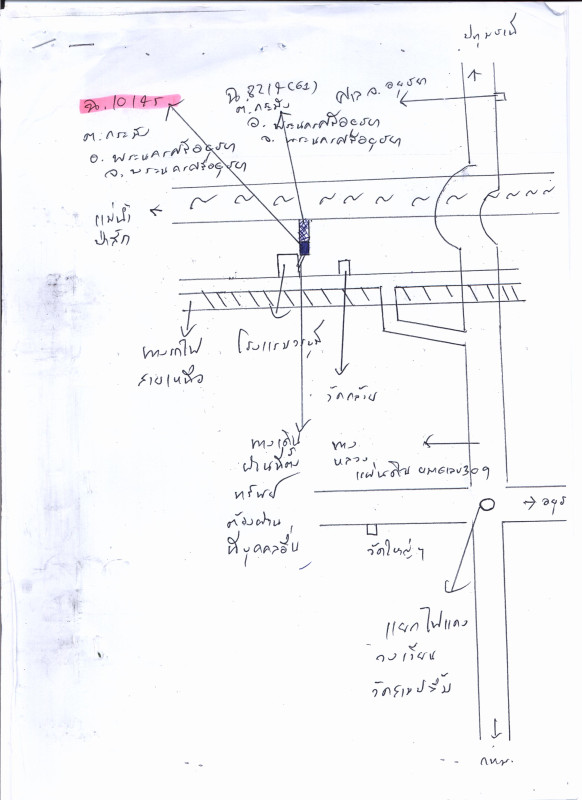 ปทุมธานี
ฉ.10145
ต.กระมัง
อ. พระนครศรีอยุธยา
จ. พระนครศรีอยุธยา
ฉ.8214(61)
ต.กระมัง
อ. พระนครศรีอยุธยา
จ. พระนครศรีอยุธยา
ศาล จ. อยุธยา
แม่น้ำ
ป่าสัก
ทางรถไฟ
สายเหนือ
โรงแรม
วัดกล้วย
ทางเดิน
ผ่านที่ตั้ง
ทรัพย์
ต้องผ่าน
ที่บุคคลอื่น
ทาง
หลวง
แผ่นดิน หมายเลข309
วัดใหญ่ฯ
แยกไฟแดง
วงเวียน
วัดสามปลื้ม
กทม.